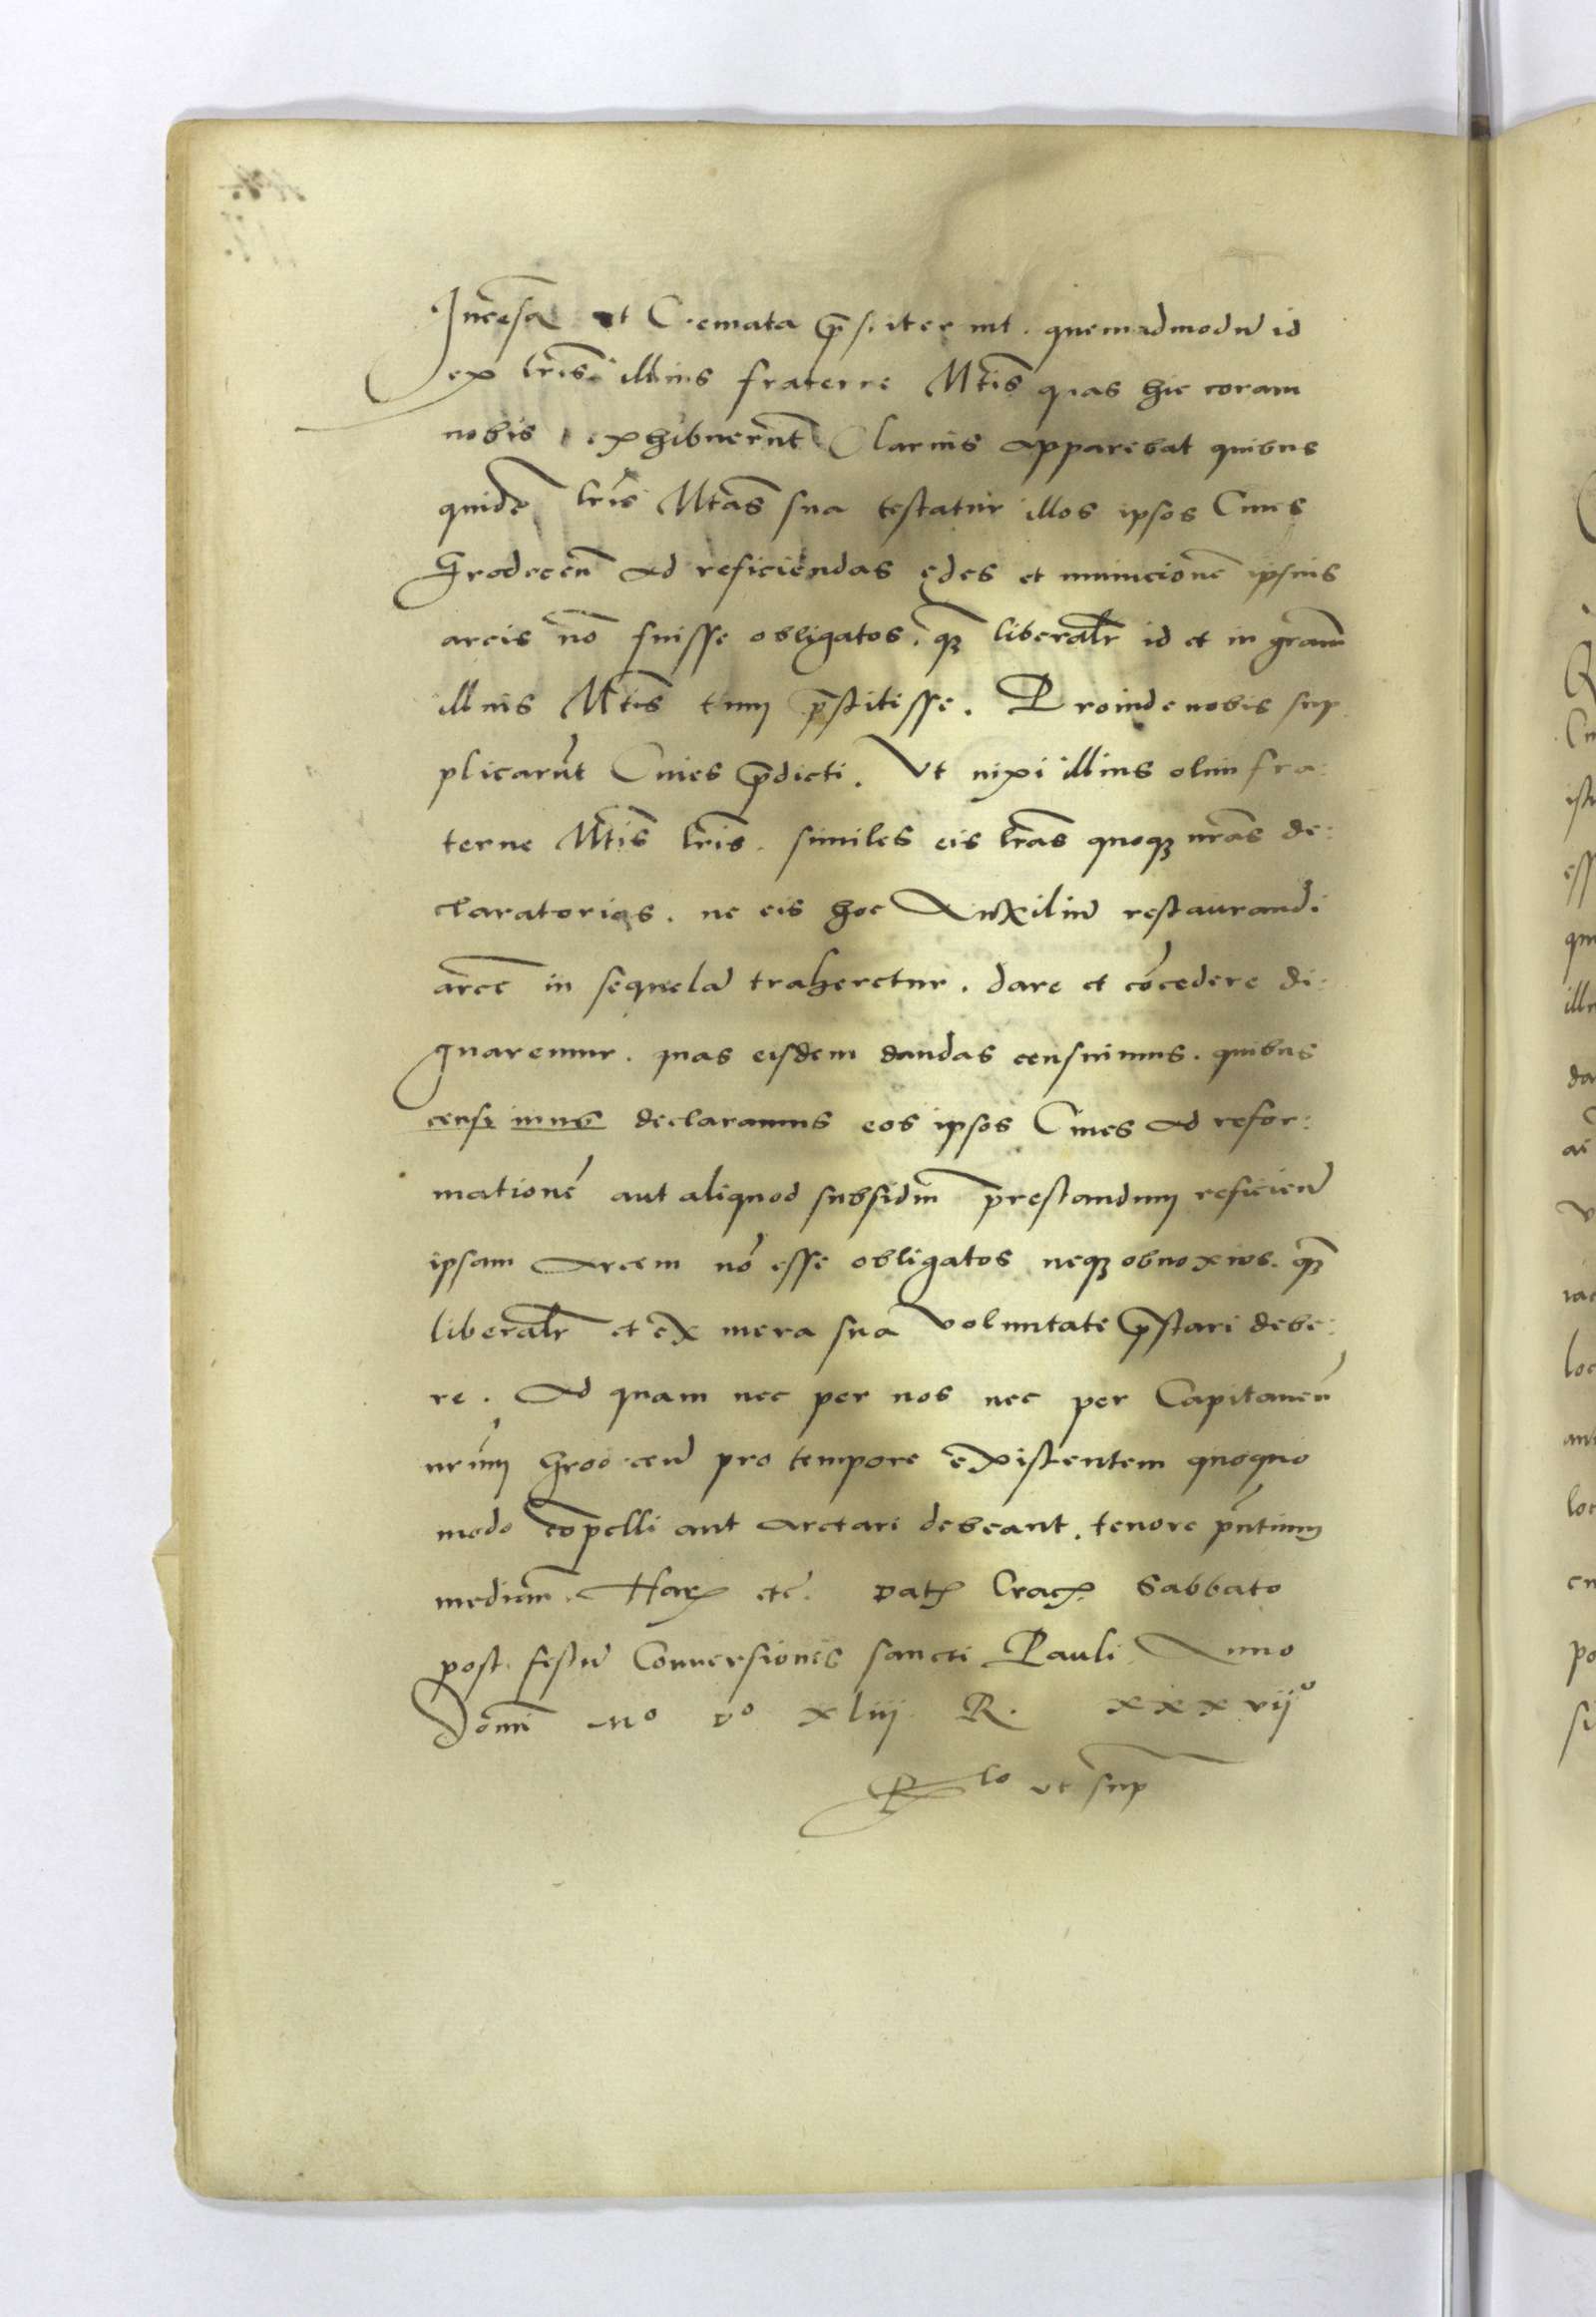 Incensa et Cremata p̄stiterint. quemadmodū id
ex lr̄is illius fraterne Mt̄is quas hic coram
nobis exhibuerūt Clarius apparebat quibus
quidē lr̄is Mt̄as sua testatur illos ipsos Ciues
Grodecen̄ ad reficiendas ędes et municionē ipsius
arcis nō fuisse obligatos. qꝫ liberalr̄ id et in grām
illius Mt̄is tum p̄stitisse. Proinde nobis sup
plicarūt Ciues p̄dicti. Vt nixi illius olim fra:
terne Mt̄is lr̄is. similes eis lr̄as quoqꝫ nr̄as de:
claratorias. ne eis hoc Auxiliū restaurandi
arcē in sequelā traheretur. dare et cōcedere di:
gnaremur. quas eisdem dandas censuimus. quibus
censuimus declaramus eos ipsos Ciues ad refor:
mationē aut aliquod subsidiū prestandum reficien̄
ipsam Arcem nō esse obligatos neqꝫ obnoxios. qꝫ
liberalr̄ et ex mera sua voluntate p̄stari debe:
re. Ad quam nec per nos nec per Capitaneū
nr̄um Grodecen̄ pro tempore existentem quoquo
modo cōpelli aut arctari debeant. tenore pn̄tium
median̄. Harꝫ etc̄. Datꝫ Cracꝫ Sabbato
post festū Conuersionis sancti Pauli Anno
Domī Mº vº xliij R. xxxvijº
Rlo vt sup̄